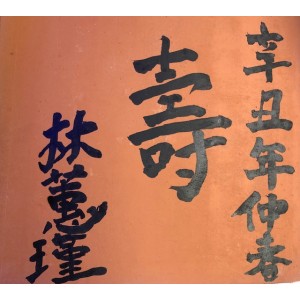 辛丑年仲春
壽
林蕙瑾